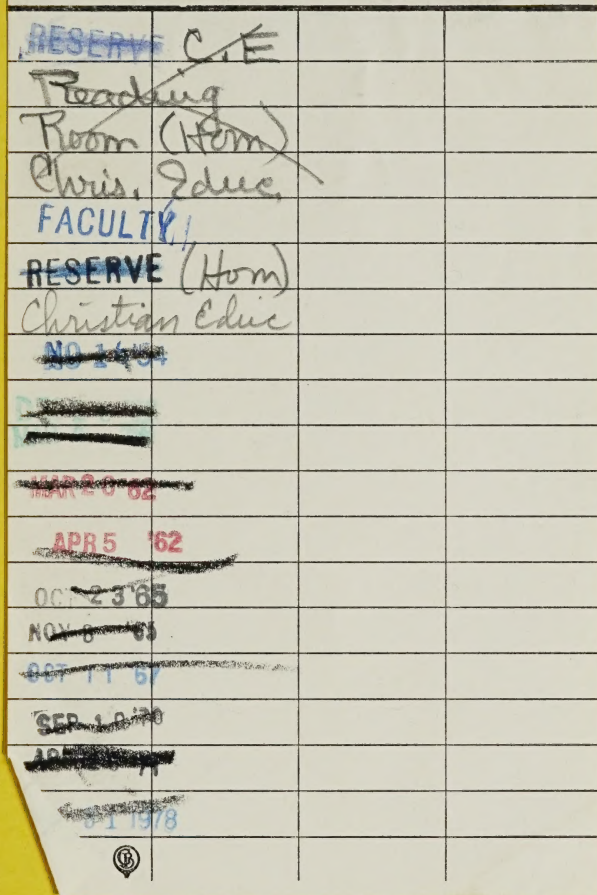 RESERVE C.E
Reading
Room (Hom)
Chris. Educ.
FACULTY
RESERVE (Hom)
Christian Educ
NO 14 '54
MAR 20 '62
APR 5 '62
OCT 23 '65
NOV 8 '65
OCT 11 '67
SEP '70
1978